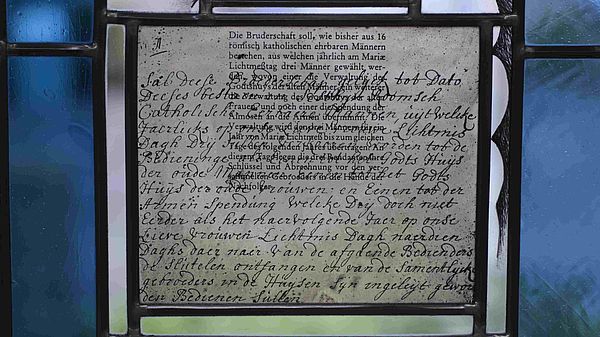 Die Bruderschaft soll, wie bisher aus 16
römisch katholischen ehrbaren Männern
bestehen, aus welchen jährlich am Mariæ
Lichtmeßtag drei Männer gewählt, wer-
den, wovon einer die Verwaltung des
Godtshuys der alten Männer, ein weiterer
die Verwaltung des Godtshuys der alten
Frauen und noch einer die Spendung der
Almosen an die Armen übernimmt. Die
Verwaltung wird den drei Männern für ein
Jahr von Mariæ Lichtmeß bis zum gleichen
Tage des folgenden Jahres übertragen. An
diesem Tage legen die drei Rendanten ihre
Schlüssel und Abrechnung vor den ver-
sammelten Gebroeders in die Hände der
Nachfolger.
Sal deese gelyck tot Dato
Deeses Roomsch
Catholische uyt welcke
Jaerlicks op Lichtmis
Dagh Dry worden tot de
Bedieninge Godts Huys
der oude het Godts
Huys der oude vrouwen: en Eenen tot der
Armen Spending Welcke Dry doch niet
Eerder als het naervolgende Jaer op onse
Lieve vrouwen Lichtmis Dagh naerdien
Daghs daer naer van de afgaende Bedienders
de Sleutelen ontfangen en van de Samentlycke
gebroeders in de Huysen Syn ingeleyt gewor
den Bedienen Sullen